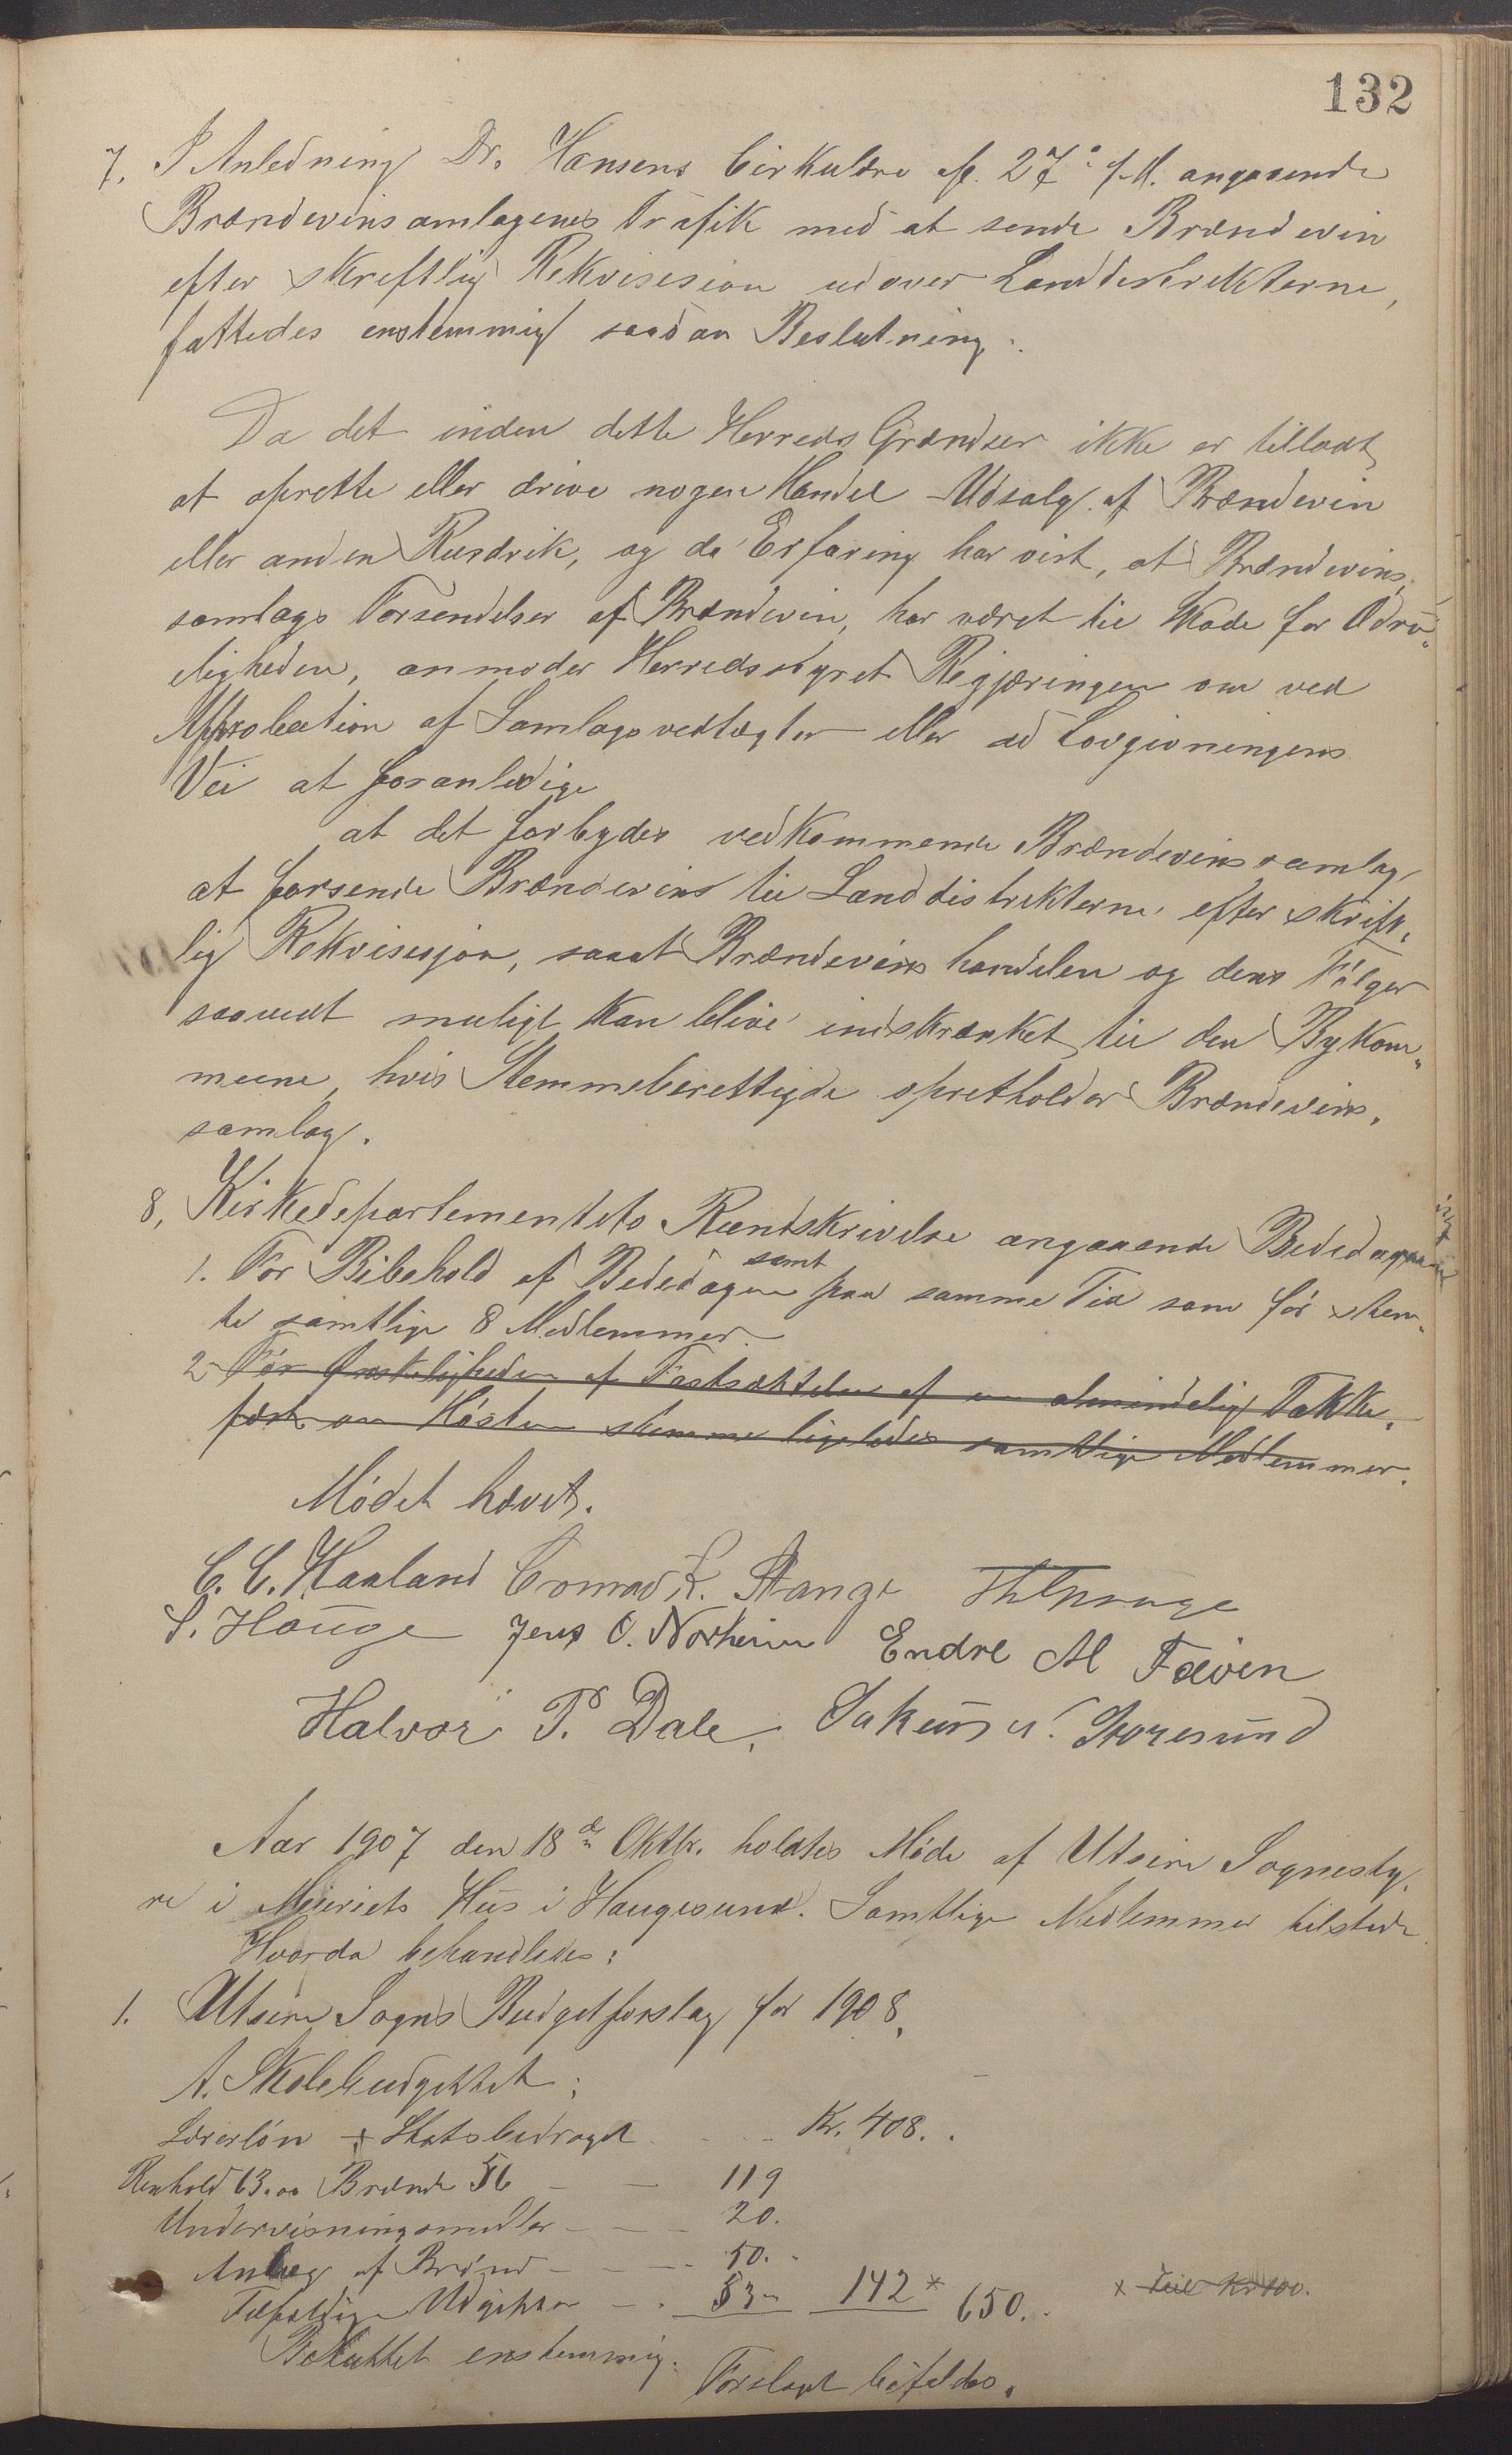 132
7. I Anledning Dr. Hansens Cirkulære af 27de f. M. angaaende
Brændevinsamlagenes Trafik med at sende Brændevin
efter skreftlig Rekvisision udover Landdistrikterne,
fattedes enstemmig saadan Beslutning:
Da det inden dette Herreds Grændser ikke er tilladt
at oprette eller drive nogen Handel - Udsalg af Brændevin
eller anden Rusdrik, og da Erfaring har vist, at Brændevins,
samlags Forsendelser af Brændevin, har været til Skade for Ædru-
eligheden, anmoder Herredsstyret Regjæringen om ved
Approbation af Samlagsvedtægter eller ad Lovgivningens
Vei at foranledige
at det forbydes vedkommende Brændevinssamlag
at forsende Brændevins til Landdistrikterne efter skrift,
lig Rekvisisjon, saaat Brændevinshandelen og dens Følger
saavidt muligt kan blive indskrænket til den Bykom-
mune, hvis Stemmeberettigde opretholder Brændevins,
samlag.
8, Kirkedepartementets Rundskrivelse angaaende Bededagene
1. For Bibehold af Bededagen samt paa samme Tid som før stem-
te samtlige 8 Medlemmer
2 For Ønskeligheden af Fastsættelse af en almindelig Takke-
fæst om Høsten stemme ligeledes samtlige Medlemmer.
Mødet hævet.
C. C. Haaland Conrad K. Stange
S. Hauge Jens O. Norheim Endre M Fæøen
Halvor P. Dale, Sakeus N. Storesund
Aar 1907 den 18de Oktbr. holdtes Møde af Utsire Sognesty,
re i Meieriets Hus i Haugesund. Samtlige Medlemmer tilstede.
Hvorda behandledes:
1. Utsire Sogns Budgetforslag for 1908.
A. Skolebudgettet:
Lærerløn + Statsbidraget Kr. 408.
Renhold 63.00 Brænde 56 119
Undervisningsmidler 20.
Anlæg af Brønd 50.
Tilfældige Udgifter 53 142 * 650. x Kr 100.
Besluttet enstemmig.
Forslaget bifaldes.